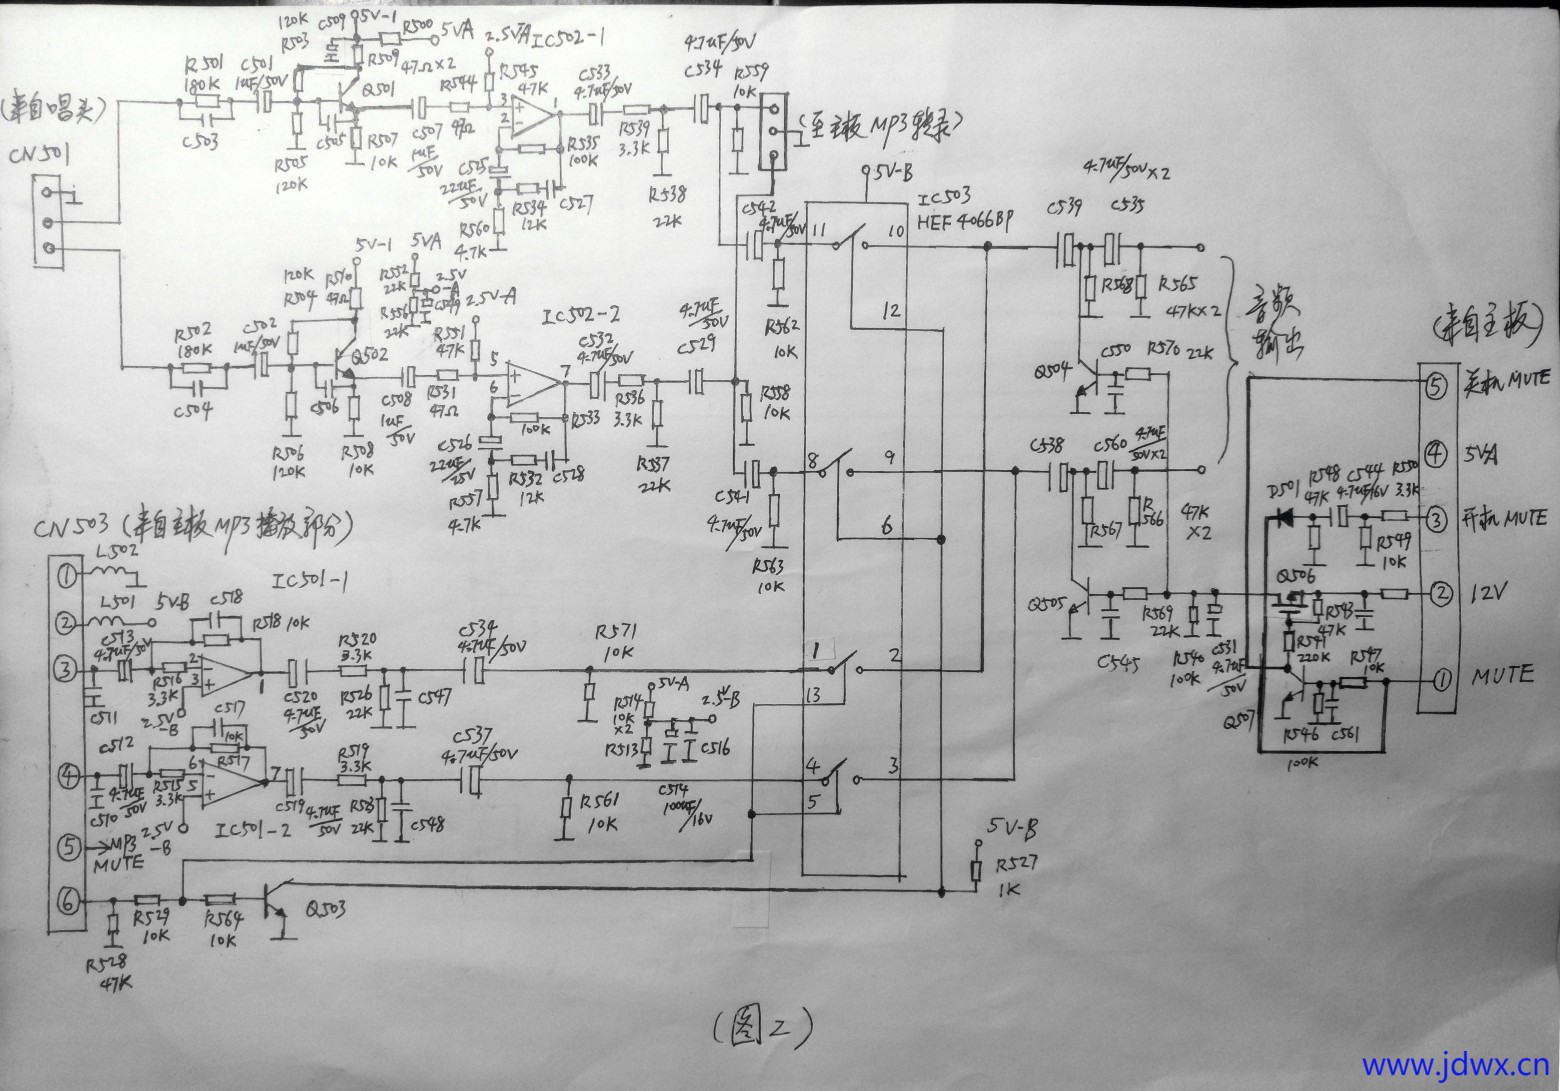 (来自唱头)
CN501
R501
180K
C503
C501
1uF/50V
120K
R503
C509
5V-1
R500
5VA
R509
47Ω×2
Q501
R505
120K
C505
R507
10K
C507
1uF
/50V
R544
47Ω
2.5VA
R545
47K
IC502-1
3
2
1
C525
22uF
/50V
R535
100K
R534
12K
C527
R560
4.7K
C533
4.7uF/50V
R539
3.3K
R538
22K
4.7uF/50V
C534
R559
10K
(至主板MP3转录)
R502
180K
C504
C502
1uF/50V
120K
R504
5V-1
R510
47Ω
Q502
R506
120K
C506
R508
10K
C508
1uF
50V
5VA
R552
22K
2.5V
-A
R556
22K
C549
2.5V-A
R551
47K
R531
47Ω
IC502-2
5
6
7
C526
22uF
/25V
100K
R533
R532
12K
C528
R557
4.7K
C532
4.7uF/50V
R536
3.3K
R537
22K
4.7uF
/50V
C529
R558
10K
C542
4.7uF/50V
R562
10K
C541
4.7uF/50V
R563
10K
5V-B
IC503
HEF4066BP
11
10
12
8
9
6
1
2
13
4
3
5
4.7uF/50V×2
C539
C535
R568
R565
47K×2
音频
输出
Q504
C550
R570
22K
C538
C560
4.7uF
/50V×2
R567
R
566
47K
×2
Q505
C545
R569
22K
R540
100K
C531
4.7uF
/50V
(来自主板)
⑤ 关机MUTE
④ 5VA
③ 开机MUTE
② 12V
① MUTE
D501
R548
47K
C544
4.7uF/16V
R550
3.3K
R549
10K
Q506
R543
47K
R541
220K
R547
10K
Q507
R546
100K
C561
CN503 (来自主板MP3播放部分)
①
L502
②
L501
5V-B
③
C513
4.7uF/50V
C511
R516
3.3K
2.5V
-B
C518
R518
10K
IC501-1
2
3
1
C520
4.7uF
/50V
R520
3.3K
R526
22K
C547
C534
4.7uF/50V
R571
10K
④
C512
4.7uF
/50V
C510
R515
3.3K
C517
10K
R517
6
5
7
2.5V
-B
IC501-2
C519
4.7uF
/50V
R519
3.3K
22K
C548
C537
4.7uF/50V
R561
10K
5V-A
R514
10K
×2
R513
2.5V-B
C516
C514
100uF
/16V
⑤ MP3
MUTE
⑥
R528
47K
R529
10K
R564
10K
Q503
5V-B
R527
1K
(图2)
www.jdwx.cn